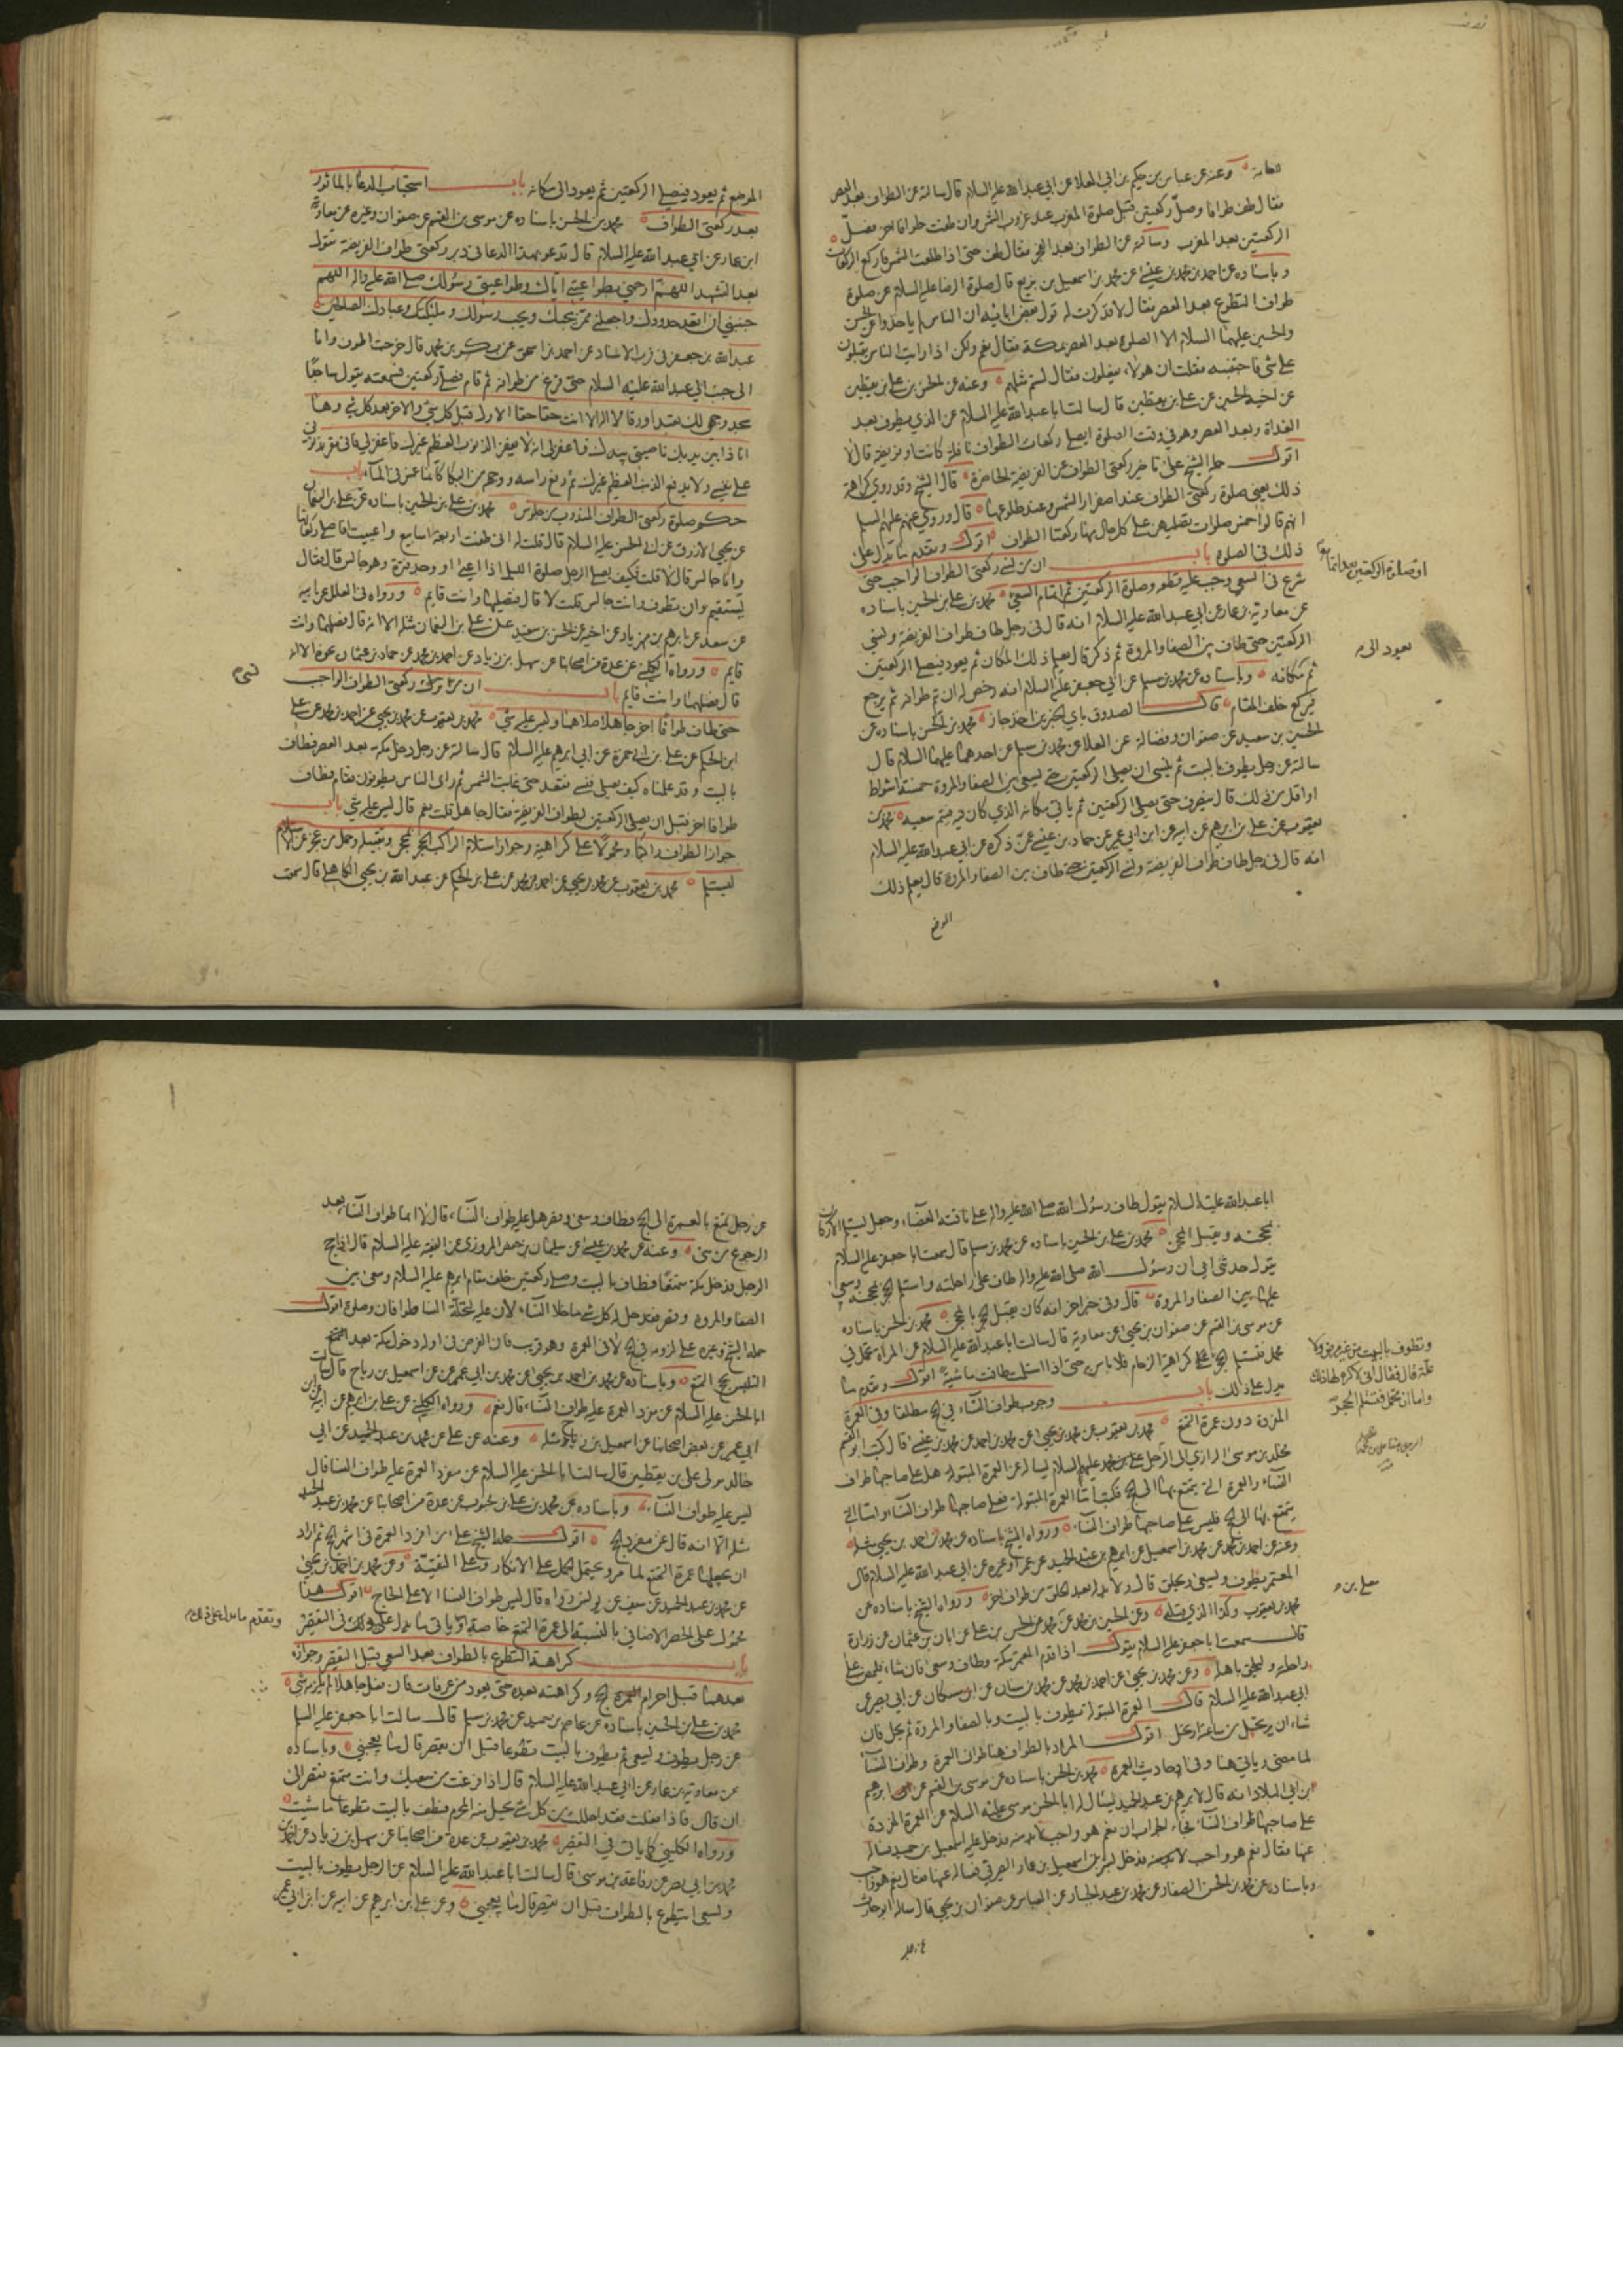 للعامة وعنه عن عباس عن حكيم بن ابي العلا عن ابي عبدالله عليه السلام قال سالته عن الطواف بعد العصر
فقال طف طوافا وصل ركعتين قبل صلوة المغرب عند غروب الشمس وان طفت طوافا اخر فصل
الركعتين بعد المغرب وسالته عن الطواف بعد الفجر فقال طف حتى اذا طلعت الشمس فاركع الركعات
وباسناده عن احمد بن محمد بن عيسى عن محمد بن اسمعيل بن بزيع قال سالت الرضا عليه السلام عن صلوة
طواف التطوع بعد العصر فقال لا فذكرت له قول بعض ابائه ان الناس لم ياخذوا عن الحسن
والحسين عليهما السلام الا الصلوة بعد العصر بمكة فقال نعم ولكن اذا رايت الناس يقبلون
على شي فاجتنبه فقلت ان هولاء يفعلون فقال لستم مثلهم وعنه عن الحسن بن علي بن يقطين
عن اخيه الحسين عن علي بن يقطين قال سالت ابا عبدالله عليه السلام عن الذي يطوف بعد
الغداة وبعد العصر وهو في وقت الصلوة ايصلي ركعات الطواف نافلة كانت او فريضة قال لا
اقول حمله الشيخ على تاخير ركعتي الطواف عن الفريضة الحاضرة قال الشيخ وقد روي كراهة
ذلك يعني صلوة ركعتي الطواف عند اصفرار الشمس وعند طلوعها قال وروي عنهم عليهم السلم
انهم قالوا خمس صلوات تصليهن على كل حال منها ركعتا الطواف اقول وتقدم ما يدل على
ذلك في الصلوة باب ان من نسي ركعتي الطواف الواجب حتى
شرع في السعي وجب عليه قطعه وصلوة الركعتين ثم اتمام السعي محمد بن علي بن الحسين باسناده
عن معاوية بن عمار عن ابي عبدالله عليه السلام انه قال في رجل طاف طواف الفريضة ونسي
الركعتين حتى طاف بين الصفا والمروة ثم ذكر قال يعلم ذلك المكان ثم يعود فيصلي الركعتين
ثم مكانه وباسناده عن محمد بن مسلم عن ابي جعفر عليه السلام انه رخص له ان يتم طوافه ثم يرجع
فيركع خلف المقام قال الصدوق باي الخبرين اخذ جاز محمد بن الحسن باسناده عن
الحسين بن سعيد عن صفوان وفضالة عن العلا عن محمد بن مسلم عن احدهما عليهما السلام قال
سالته عن رجل يطوف بالبيت ثم ينسى ان يصلي الركعتين حتى يسعى بين الصفا والمروة خمسة اشواط
او اقل من ذلك قال ينصرف حتى يصلي الركعتين ثم ياتي مكانه الذي كان فيه فيتم سعيه محمد بن
يعقوب عن علي بن ابرهيم عن ابيه عن ابن ابي عمير عن حماد بن عيسى عمن ذكره عن ابي عبدالله عليه السلام
انه قال في رجل طاف طواف الفريضة ونسي الركعتين حتى طاف بين الصفا والمروة قال يعلم ذلك
الموضع
يعود الى
الموضع ثم يعود فيصلي الركعتين ثم يعود الى مكانه باب استحباب الدعا بالماثور
بعد ركعتي الطواف محمد بن الحسن باسناده عن موسى بن القسم عن صفوان وغيره عن معاوية
ابن عمار عن ابي عبدالله عليه السلام قال تدعو بهذا الدعا في دبر ركعتي طواف الفريضة تقول
بعد التشهد اللهم ارحمني بطواعيتي اياك وطواعيتي رسولك صلى الله عليه واله اللهم
جنبني ان اتعدى حدودك واجعلني ممن يحبك ويحب رسولك وملئكتك وعبادك الصالحين
عبدالله بن جعفر في قرب الاسناد عن احمد بن اسحق عن بكر بن محمد قال خرجت اطوف وانا
الى جنب ابي عبدالله عليه السلام حتى فرغ من طوافه ثم قام فصلى ركعتين فسمعته يقول ساجدا
سجد وجهي لك تعبدا ورقا لا اله الا انت حقا حقا الاول قبل كل شي والاخر بعد كل شي وها
انا ذا بين يديك ناصيتي بيدك فاغفر لي انه لا يغفر الذنوب العظيم غيرك فاغفر لي فاني مقر بذنوبي
على نفسي ولا يدفع الذنب العظيم غيرك ثم رفع راسه ووجهه من البكا كانما غمس في الماء باب
حكم صلوة ركعتي الطواف المندوب من جلوس محمد بن علي بن الحسين باسناده عن علي بن النعمان
عن يحيى الازرق عن ابي الحسن عليه السلام قال قلت له اني طفت اربعة اسابيع واعييت افاصلي ركعاتها
وانا جالس قال لا قلت فكيف يصلي الرجل صلوة الليل اذا اعيى او وجد فترة وهو جالس قال فقال
يستقيم وان تطوف وانت جالس قلت لا قال فتصليهما وانت قايم ورواه في العلل عن ابيه
عن سعد عن ابرهيم بن مهزيار عن اخيه عن الحسن بن سعيد عن علي بن النعمان مثله الا انه قال تصليهما وانت
قايم ورواه الكليني عن عدة من اصحابنا عن سهل بن زياد عن احمد بن محمد عن حماد بن عثمان نحوه الا انه
قال تصليهما وانت قايم باب ان من ترك ركعتي الطواف الواجب
حتى طاف طوافا اخر جاهلا صلاهما وليس عليه شي محمد بن يعقوب عن محمد بن يحيى عن احمد بن محمد عن علي
ابن الحكم عن علي بن ابي حمزة عن ابي ابرهيم عليه السلام قال سالته عن رجل دخل مكة بعد العصر فطاف
بالبيت وقد علمناه كيف يصلي فنسي فقعد حتى غابت الشمس ثم راى الناس يطوفون فقام فطاف
طوافا اخر قبل ان يصلي الركعتين لطواف الفريضة فقال جاهل قلت نعم قال ليس عليه شي باب
جواز الطواف راكبا ومحمولا على كراهية وجواز استلام الراكب الحجر بمحجن وتقبيله وحمل من عجز عن استلام
ليستلم محمد بن يعقوب عن محمد بن يحيى عن احمد بن محمد عن علي بن الحكم عن عبدالله بن يحيى الكاهلي قال سمعت
ابا عبدالله عليه السلام يقول طاف رسول الله صلى الله عليه واله على ناقته العضباء وجعل يستلم الاركان
بمحجنه ويقبل المحجن محمد بن علي بن الحسين باسناده عن محمد بن مسلم قال سمعت ابا جعفر عليه السلام
يقول حدثني ابي ان رسول الله صلى الله عليه واله طاف على راحلته واستلم الحجر بمحجنه وسعى
عليها بين الصفا والمروة قال وفي خبر اخر انه كان يقبل الحجر بالمحجن محمد بن الحسن باسناده
عن موسى بن القسم عن صفوان بن يحيى عن معاوية قال سالت ابا عبدالله عليه السلام عن المراة تحمل في
محمل فتستلم الحجر
وتطوف بالبيت من غير مرض ولا
علة قال فقال اني لاكره لها ذلك
واما ان تحمل فتستلم الحجر
كراهية الزحام فلا باس حتى اذا استلمت طافت ماشية اقول وتقدم ما
يدل على ذلك باب وجوب طواف النساء في الحج مطلقا وفي العمرة
المفردة دون عمرة التمتع محمد بن يعقوب عن محمد بن يحيى عن محمد بن احمد عن محمد بن عيسى قال كتب ابو القسم
مخلد بن موسى الرازي الى الرجل علي بن محمد عليهم السلام يساله عن العمرة المبتولة هل على صاحبها طواف
النساء والعمرة التي يتمتع بها الى الحج فكتب اما العمرة المبتولة فعلى صاحبها طواف النساء واما التي
يتمتع بها الى الحج فليس على صاحبها طواف النساء ورواه الشيخ باسناده عن محمد بن احمد بن يحيى مثله
وعنه عن احمد بن محمد عن محمد بن اسمعيل عن ابرهيم بن عبد الحميد عن عمر او غيره عن ابي عبدالله عليه السلام قال
المعتمر يطوف ويسعى ويحلق قال ولا بد له بعد الحلق من طواف اخر ورواه الشيخ باسناده عن
محمد بن يعقوب وكذا الذي قبله وعن الحسين بن محمد عن الحسن بن علي عن ابان بن عثمان عن زرارة
قال سمعت ابا جعفر عليه السلام يقول اذا قدم المعتمر مكة وطاف وسعى فان شاء فليمض على
راحلته وليلحق باهله وعن محمد بن يحيى عن احمد بن محمد عن محمد بن سنان عن ابن مسكان عن ابي بصير عن
ابي عبدالله عليه السلام قال العمرة المبتولة يطوف بالبيت وبالصفا والمروة ثم يحل فان
شاء ان يرتحل من ساعته ارتحل اقول المراد بالطواف هنا طواف العمرة وطواف النساء
لما مضى وياتي هنا وفي احاديث العمرة محمد بن الحسن باسناده عن موسى بن القسم عن ابرهيم
ابن ابي البلاد انه قال لابرهيم بن عبد الحميد يسال له ابا الحسن موسى عليه السلام عن العمرة المفردة
على صاحبها طواف النساء فجاء الجواب ان نعم هو واجب لا بد منه فدخل عليه اسمعيل بن حميد فساله
عنها فقال نعم هو واجب لا بد منه فدخل بشر بن اسمعيل بن عمار الصيرفي فساله عنها فقال نعم هو واجب
وباسناده عن محمد بن الحسن الصفار عن محمد بن عبد الجبار عن العباس عن صفوان بن يحيى قال ساله ابو حارث
عن رجل تمتع بالعمرة الى الحج فطاف وسعى وقصر هل عليه طواف النساء قال لا انما طواف النساء بعد
الرجوع من منى وعنه عن محمد بن عيسى عن سليمان بن حفص المروزي عن الفقيه عليه السلام قال اذا حج
الرجل فدخل مكة متمتعا فطاف بالبيت وصلى ركعتين خلف مقام ابرهيم عليه السلام وسعى بين
الصفا والمروة وقصر فقد حل له كل شي ما خلا النساء لان عليه لتحلة النسا طوافا وصلوة اقول
حمله الشيخ وغيره على لزومه في الحج لا في العمرة وهو قريب فان الغرض في اوله دخول مكة بعد التمتع
التلبس بحج التمتع وباسناده عن محمد بن احمد بن يحيى عن محمد بن ابي عمير عن اسمعيل بن رياح قال سالت
ابا الحسن عليه السلام عن مفرد العمرة عليه طواف النساء قال نعم ورواه الكليني عن علي بن ابرهيم عن ابيه عن ابن
ابي عمير عن بعض اصحابنا عن اسمعيل بن رياح مثله وعنه عن علي عن محمد بن عبد الحميد عن ابي
خالد مولى علي بن يقطين قال سالت ابا الحسن عليه السلام عن مفرد العمرة عليه طواف النسا قال
ليس عليه طواف النساء وباسناده عن محمد بن علي بن محبوب عن عدة من اصحابنا عن محمد بن عبد الحميد
مثله الا انه قال عن مفرد الحج اقول حمله الشيخ على من افرد العمرة في اشهر الحج ثم اراد
ان يجعلها عمرة التمتع لما مر ويحتمل الحمل على الانكار وعلى التقية وعن محمد بن احمد بن يحيى
عن محمد بن عبد الحميد عن سيف عن يونس رواه قال ليس طواف النسا الا على الحاج اقول هذا
محمول على الحصر الاضافي بالنسبة الى عمرة التمتع خاصة وياتي ما يدل على ذلك في التقصير
باب كراهة التطوع بالطواف بعد السعي قبل التقصير وجوازه
بعدهما قبل احرام الحج وكراهته بعده حتى يعود من عرفات فان فعل جاهلا لم يلزمه شي
محمد بن علي بن الحسين باسناده عن عاصم بن حميد عن محمد بن مسلم قال سالت ابا جعفر عليه السلم
عن رجل يطوف ويسعى ثم يطوف بالبيت تطوعا قبل ان يقصر قال ما يعجبني وباسناده
عن معاوية بن عمار عن ابي عبدالله عليه السلام قال اذا فرغت من سعيك وانت متمتع فقصر الى
ان قال فاذا فعلت فقد احللت من كل شي يحل منه المحرم فطف بالبيت تطوعا ما شئت
ورواه الكليني كما ياتي في التقصير محمد بن يعقوب عن عدة من اصحابنا عن سهل بن زياد عن احمد بن
محمد بن ابي نصر عن رفاعة بن موسى قال سالت ابا عبدالله عليه السلام عن الرجل يطوف بالبيت
ويسعى ايتطوع بالطواف قبل ان يقصر قال ما يعجبني وعن علي بن ابرهيم عن ابيه عن ابن ابي عمير